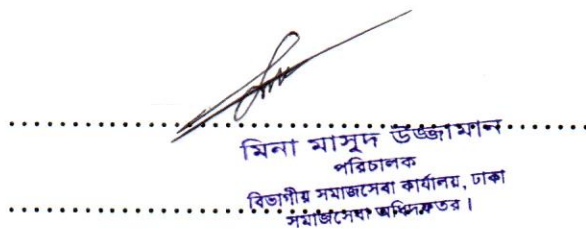 মিনা মাসুদ উজ্জামান
পরিচালক
বিভাগীয় সমাজসেবা কার্যালয়, ঢাকা
সমাজসেবা অধিদফতর।